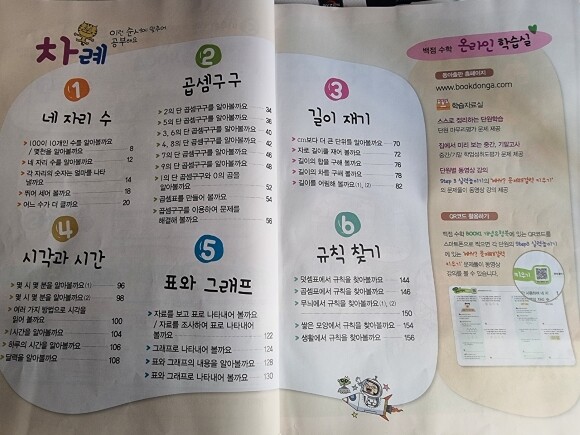 차례
이런 순서에 맞추어
공부해요
1
네 자리 수
100이 10개인 수를 알아볼까요
/ 몇천을 알아볼까요 8
네 자리 수를 알아볼까요 12
각 자리의 숫자는 얼마를 나타
낼까요 14
뛰어 세어 볼까요 18
어느 수가 더 클까요 20
2
곱셈구구
2의 단 곱셈구구를 알아볼까요 34
5의 단 곱셈구구를 알아볼까요 36
3, 6의 단 곱셈구구를 알아볼까요 40
4, 8의 단 곱셈구구를 알아볼까요 42
7의 단 곱셈구구를 알아볼까요 46
9의 단 곱셈구구를 알아볼까요 48
1의 단 곱셈구구와 0의 곱을
알아볼까요 52
곱셈표를 만들어 볼까요 54
곱셈구구를 이용하여 문제를
해결해 볼까요 56
3
길이 재기
cm보다 더 큰 단위를 알아볼까요 70
자로 길이를 재어 볼까요 72
길이의 합을 구해 볼까요 76
길이의 차를 구해 볼까요 78
길이를 어림해 볼까요(1), (2) 82
4
시각과 시간
몇 시 몇 분을 알아볼까요(1) 96
몇 시 몇 분을 알아볼까요(2) 98
여러 가지 방법으로 시각을
읽어 볼까요 100
1시간을 알아볼까요 104
하루의 시간을 알아볼까요 106
달력을 알아볼까요 108
5
표와 그래프
자료를 보고 표로 나타내어 볼까요
/ 자료를 조사하여 표로 나타내어
볼까요 122
그래프로 나타내어 볼까요 124
표와 그래프의 내용을 알아볼까요 128
표와 그래프로 나타내어 볼까요 130
6
규칙 찾기
덧셈표에서 규칙을 찾아볼까요 144
곱셈표에서 규칙을 찾아볼까요 146
무늬에서 규칙을 찾아볼까요(1), (2)
150
쌓은 모양에서 규칙을 찾아볼까요 154
생활에서 규칙을 찾아볼까요 156
백점 수학 온라인 학습실
동아출판 홈페이지
www.bookdonga.com
학습자료실
스스로 정리하는 단원학습
단원 마무리평가 문제 제공
집에서 미리 보는 중간, 기말고사
중간/기말 학업성취도평가 문제 제공
단원별 동영상 강의
의 문제풀이 동영상 강의 제공
QR코드 활용하기
스마트폰으로 찍으면 각 단원의
문제풀이 동영상
강의를 볼 수 있습니다.